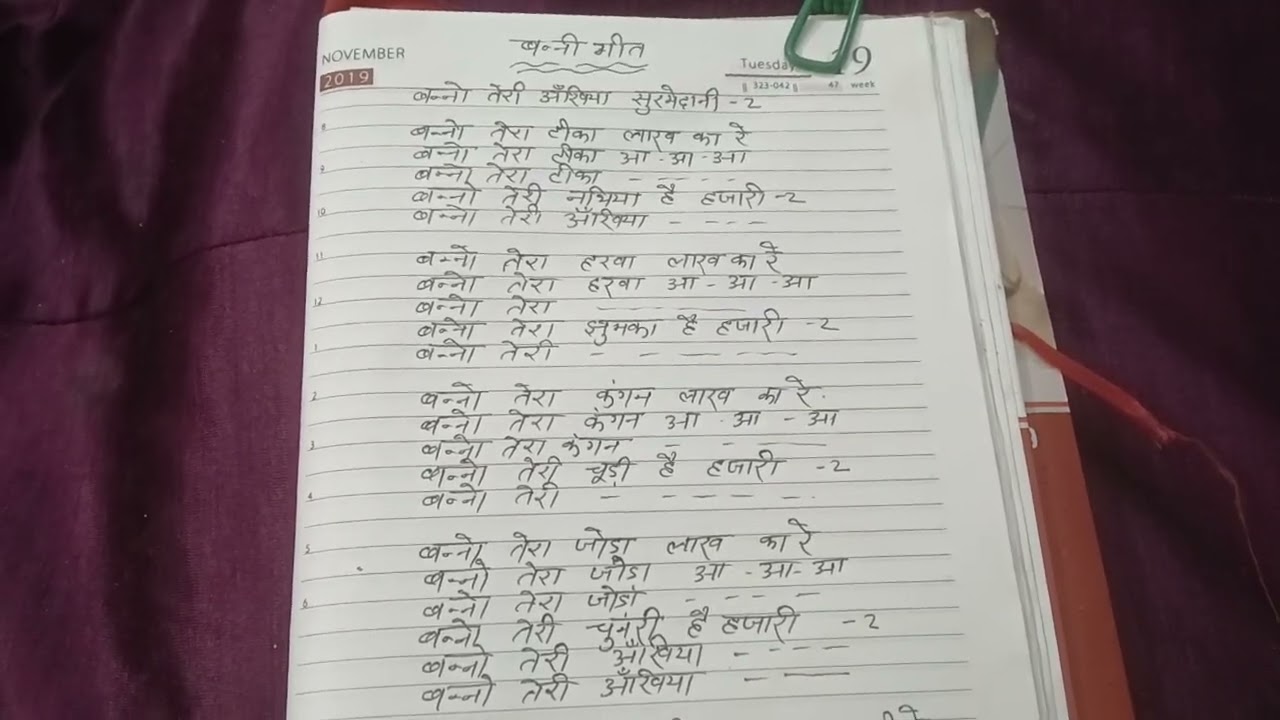 NOVEMBER
2019
बन्नी गीत
Tuesday 19
323-042 47 week
बन्नो तेरी अँखिया सुरमेदानी -2
8
बन्नो तेरा टीका लाख का रे
बन्नो तेरा टीका आ - आ - आ
9
बन्नो तेरा टीका - - - - -
बन्नो तेरी नथिया है हजारी -2
10
बन्नो तेरी अँखिया - - - -
11
बन्नो तेरा हरवा लाख का रे
बन्नो तेरा हरवा आ - आ - आ
12
बन्नो तेरा - - - -
बन्नो तेरा झुमका है हजारी -2
1
बन्नो तेरी - - - - -
2
बन्नो तेरा कंगन लाख का रे
बन्नो तेरा कंगन आ - आ - आ
3
बन्नो तेरा कंगन - - -
बन्नो तेरी चूड़ी है हजारी -2
4
बन्नो तेरी - - - - -
5
बन्नो तेरा जोड़ा लाख का रे
बन्नो तेरा जोडा आ - आ - आ
6
बन्नो तेरा जोडा - - - -
बन्नो तेरी चुनरी है हजारी -2
बन्नो तेरी अँखिया - - - -
बन्नो तेरी अँखिया - - -